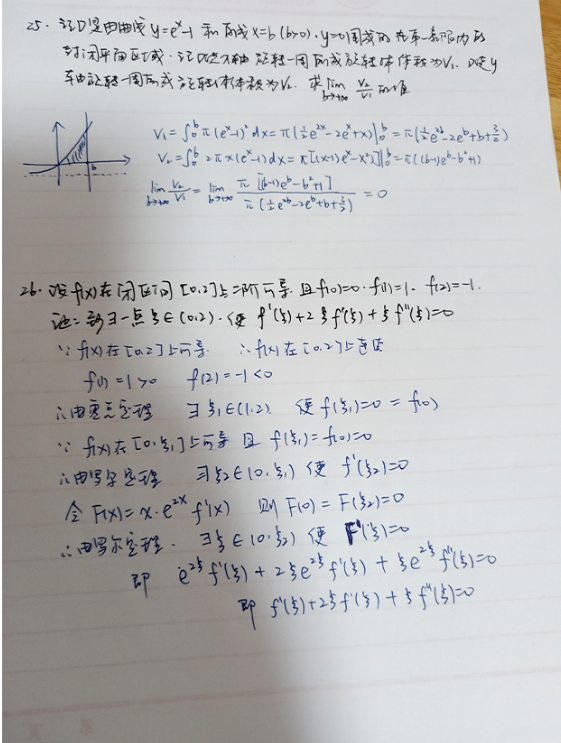 25. 记D是由曲线 y=eˣ-1 和直线 x=b (b>0), y=0 围成的在第一象限内的
封闭平面区域. 记D绕x轴旋转一周所成旋转体体积为V₁. D绕y
轴旋转一周所成旋转体体积为V₂. 求 lim b→+∞ V₂/V₁ 的值
b
V₁ = ∫₀ᵇ π(eˣ-1)² dx = π(½e²ˣ-2eˣ+x)|₀ᵇ = π(½e²ᵇ-2eᵇ+b+3/2)
V₂ = ∫₀ᵇ 2πx(eˣ-1)dx = π[2(x-1)eˣ-x²]|₀ᵇ = π((b-1)eᵇ-b²+1)
lim b→+∞ V₂/V₁ = lim b→+∞ π[(b-1)eᵇ-b²+1] / π(½e²ᵇ-2eᵇ+b+3/2) = 0
26. 设f(x)在闭区间[0,2]上二阶可导 且f(0)=0. f(1)=1. f(2)=-1.
证: 至少∃一点ξ∈(0,2). 使 f'(ξ)+2ξf'(ξ)+ξf''(ξ)=0
∵ f(x)在[0,2]上可导 ∴ f(x)在[0,2]上连续
f(1)=1>0 f(2)=-1<0
∴由零点定理 ∃ξ₁∈(1,2) 使f(ξ₁)=0=f(0)
∵ f(x)在[0,ξ₁]上可导 且 f(ξ₁)=f(0)=0
∴由罗尔定理 ∃ξ₂∈(0,ξ₁) 使 f'(ξ₂)=0
令 F(x)=x·e²ˣf'(x) 则 F(0)=F(ξ₂)=0
∴由罗尔定理. ∃ξ∈(0,ξ₂) 使 F'(ξ)=0
即 e^{2ξ}f'(ξ)+2ξe^{2ξ}f'(ξ)+ξe^{2ξ}f''(ξ)=0
即 f'(ξ)+2ξf'(ξ)+ξf''(ξ)=0